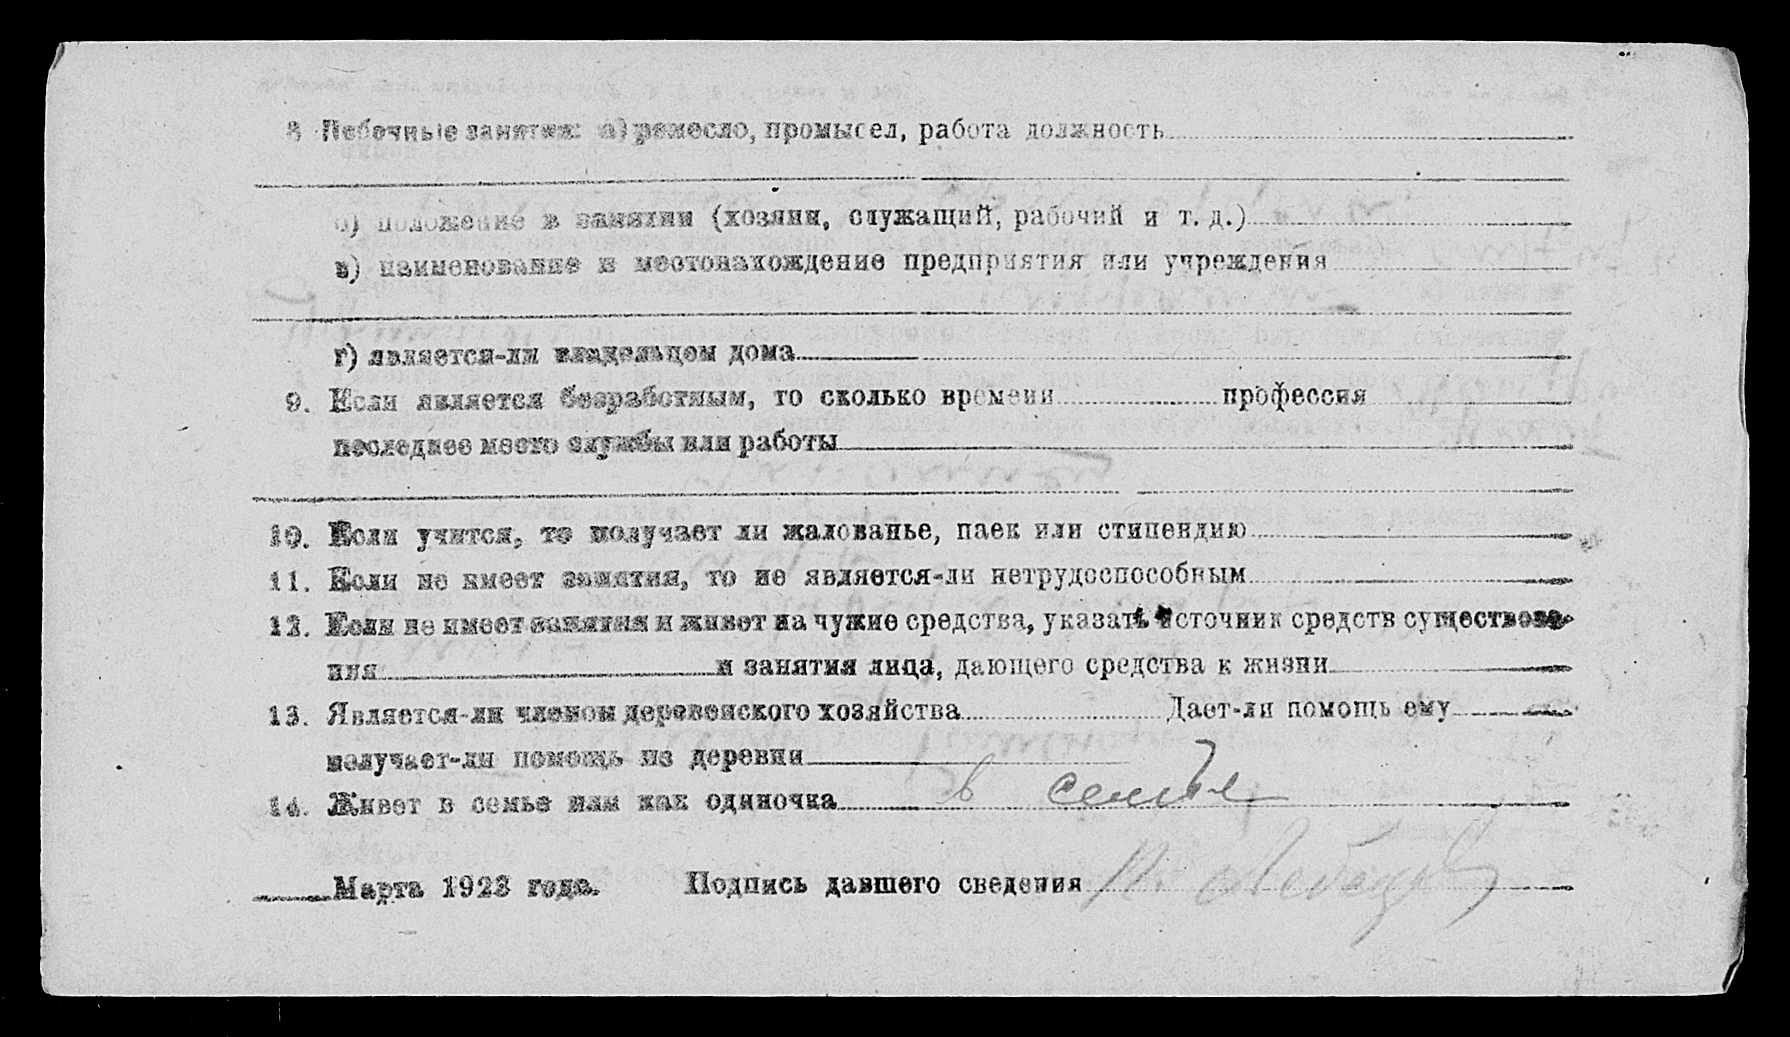 8 Побочные занятия: а) ремесло, промысел, работа должность
б) положение в занятии (хозяин, служащий, рабочий и т. д.)
в) наименование и местонахождение предприятия или учреждения
г) является-ли владельцем дома
9. Если является безработным, то сколько времени профессия
последнее место службы или работы
10. Если учится, то получает ли жалованье, паек или стипендию
11. Если не имеет занятия, то не является-ли нетрудоспособным
12. Если не имеет занятия и живет на чужие средства, указать источник средств существова-
ния и занятия лица, дающего средства к жизни
13. Является-ли членом деревенского хозяйства Дает-ли помощь ему
получает-ли помощь из деревни
14. Живет в семье или как одиночка в семье
Марта 1923 года. Подпись давшего сведения